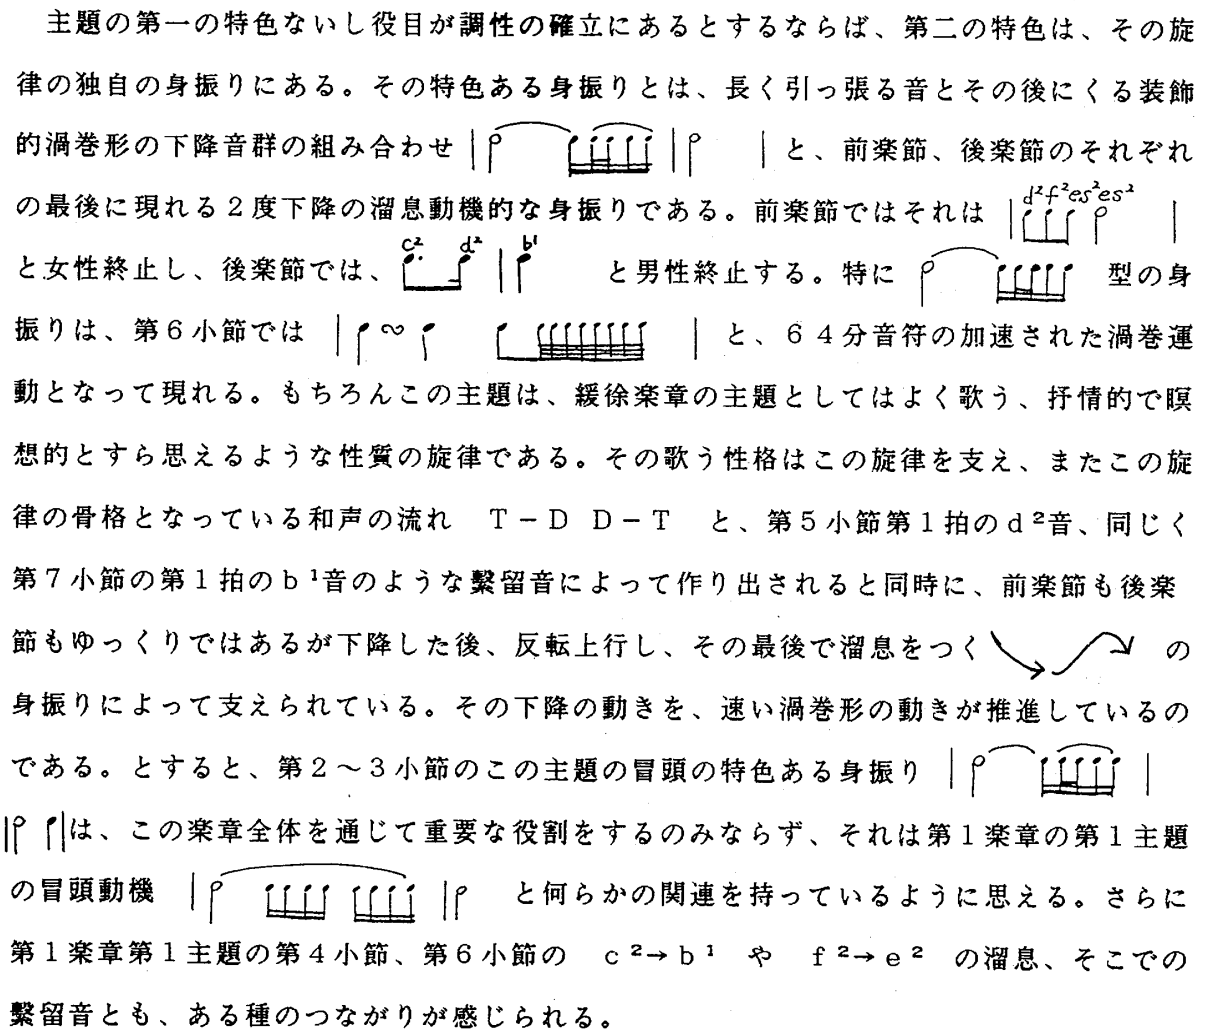 主題の第一の特色ないし役目が調性の確立にあるとするならば、第二の特色は、その旋
律の独自の身振りにある。その特色ある身振りとは、長く引っ張る音とその後にくる装飾
的渦巻形の下降音群の組み合わせ と、前楽節、後楽節のそれぞれ
の最後に現れる2度下降の溜息動機的な身振りである。前楽節ではそれは d²f²es²es²
と女性終止し、後楽節では、 c² d² b¹ と男性終止する。特に 型の身
振りは、第6小節では と、64分音符の加速された渦巻運
動となって現れる。もちろんこの主題は、緩徐楽章の主題としてはよく歌う、抒情的で瞑
想的とすら思えるような性質の旋律である。その歌う性格はこの旋律を支え、またこの旋
律の骨格となっている和声の流れ T－D D－T と、第5小節第1拍のd²音、同じく
第7小節の第1拍のb¹音のような繋留音によって作り出されると同時に、前楽節も後楽
節もゆっくりではあるが下降した後、反転上行し、その最後で溜息をつく の
身振りによって支えられている。その下降の動きを、速い渦巻形の動きが推進しているの
である。とすると、第2～3小節のこの主題の冒頭の特色ある身振り
は、この楽章全体を通じて重要な役割をするのみならず、それは第1楽章の第1主題
の冒頭動機 と何らかの関連を持っているように思える。さらに
第1楽章第1主題の第4小節、第6小節の c²→b¹ や f²→e² の溜息、そこでの
繋留音とも、ある種のつながりが感じられる。